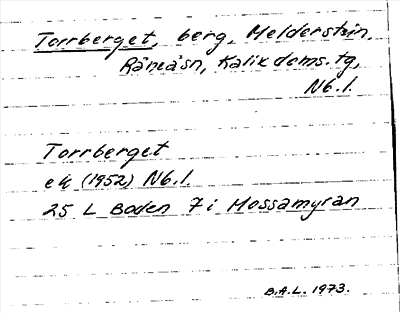 Torrberget, berg, Melderstein,
Råneå sn, Kalix doms. tg,
Nb. l.
Torrberget
ek (1952) Nb. l.
25 L Boden 7 i Mossamyran
B.A.L. 1973.